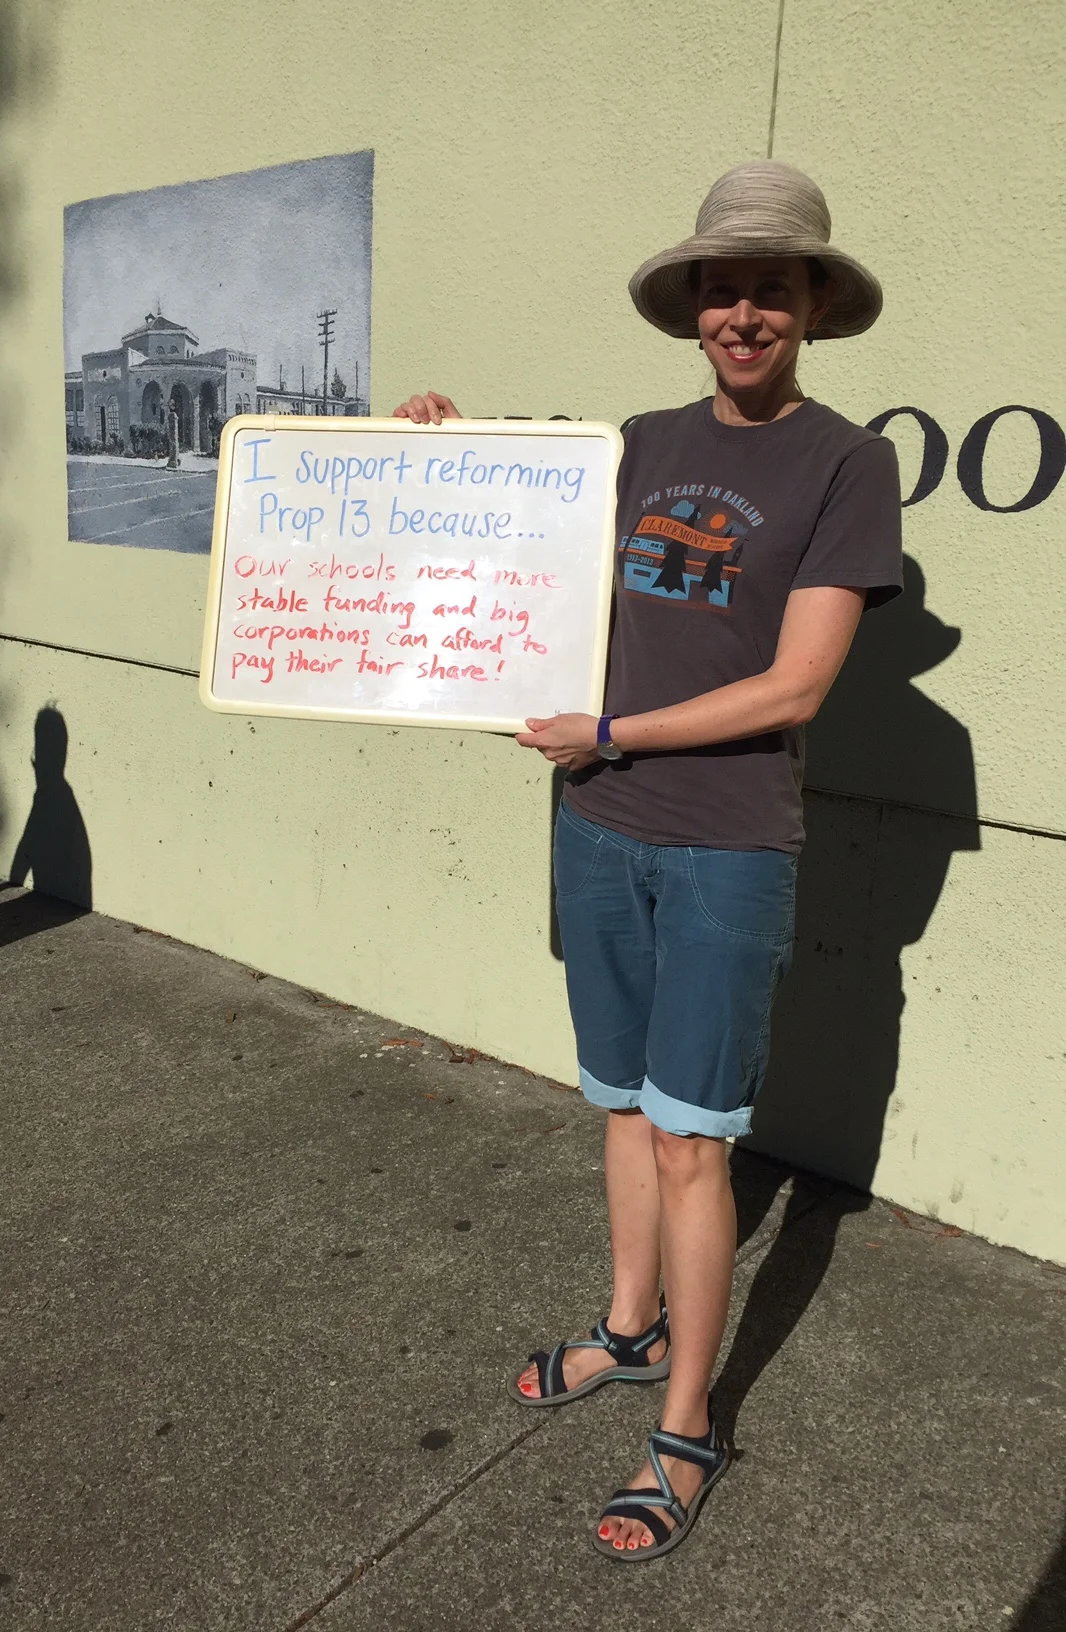 I support reforming
Prop 13 because...
Our schools need more
stable funding and big
corporations can afford to
pay their fair share!
100 YEARS IN OAKLAND
CLAREMONT
1913-2013
OO